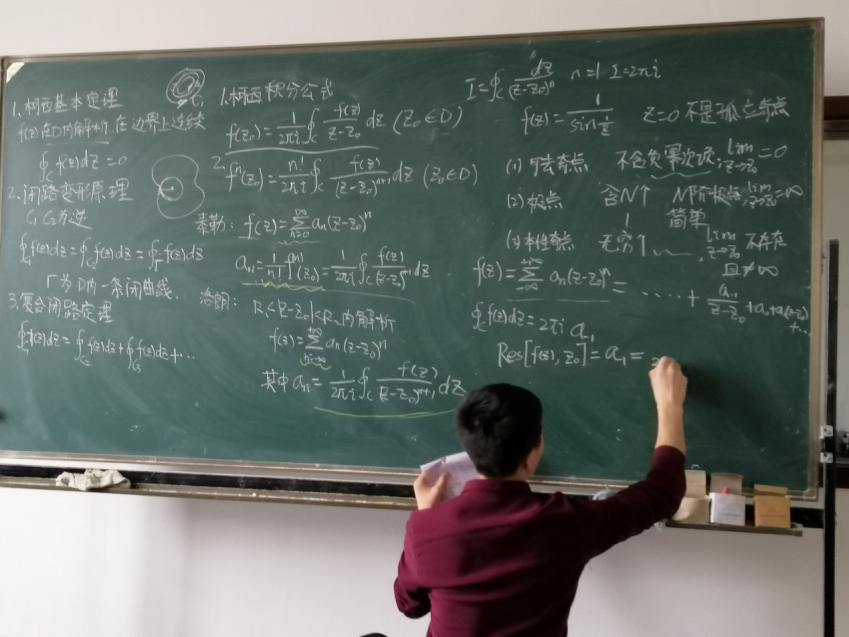 1. 柯西基本定理
f(z)在D内解析,在边界上连续
∮_C f(z)dz = 0
2. 闭路变形原理
C₁ C₂为逆
∮_{C₁} f(z)dz = ∮_{C₂} f(z)dz = ∮_Γ f(z)dz
Γ为D内一条闭曲线.
3. 复合闭路定理
∮_{C₁} f(z)dz = ∮_{C₂} f(z)dz + ∮_{C₃} f(z)dz + ⋯
C₁
1. 柯西积分公式
f(z₀) = 1/(2πi) ∮_C f(z)/(z-z₀) dz (z₀∈D)
2. fⁿ(z₀) = n!/(2πi) ∮_C f(z)/(z-z₀)ⁿ⁺¹ dz (z₀∈D)
泰勒: f(z) = ∑_{n=0}^{∞} aₙ(z-z₀)ⁿ
aₙ = 1/n! f⁽ⁿ⁾(z₀) = 1/(2πi) ∮_C f(z)/(z-z₀)ⁿ⁺¹ dz
洛朗: R₁<|z-z₀|<R₂内解析
f(z) = ∑_{n=-∞}^{+∞} aₙ(z-z₀)ⁿ
其中 aₙ = 1/(2πi) ∮_C f(z)/(z-z₀)ⁿ⁺¹ dz
I = ∮_C dz/(z-z₀)ⁿ n=1 I=2πi
f(z) = 1/sin(1/z) z=0 不是孤立奇点
(1) 可去奇点 不含负幂次项; lim_{z→z₀} = 0
(2) 极点 含N个 N阶极点, lim_{z→z₀} = ∞
1 简单
(3) 本性奇点 无穷个 lim_{z→z₀} 不存在
且≠∞
f(z) = ∑_{-∞}^{+∞} aₙ(z-z₀)ⁿ = ⋯⋯ + a₋₁/(z-z₀) + a₀ + a₁(z-z₀)
+⋯
∮_C f(z)dz = 2πi a₋₁
Res[f(z), z₀] = a₋₁ =